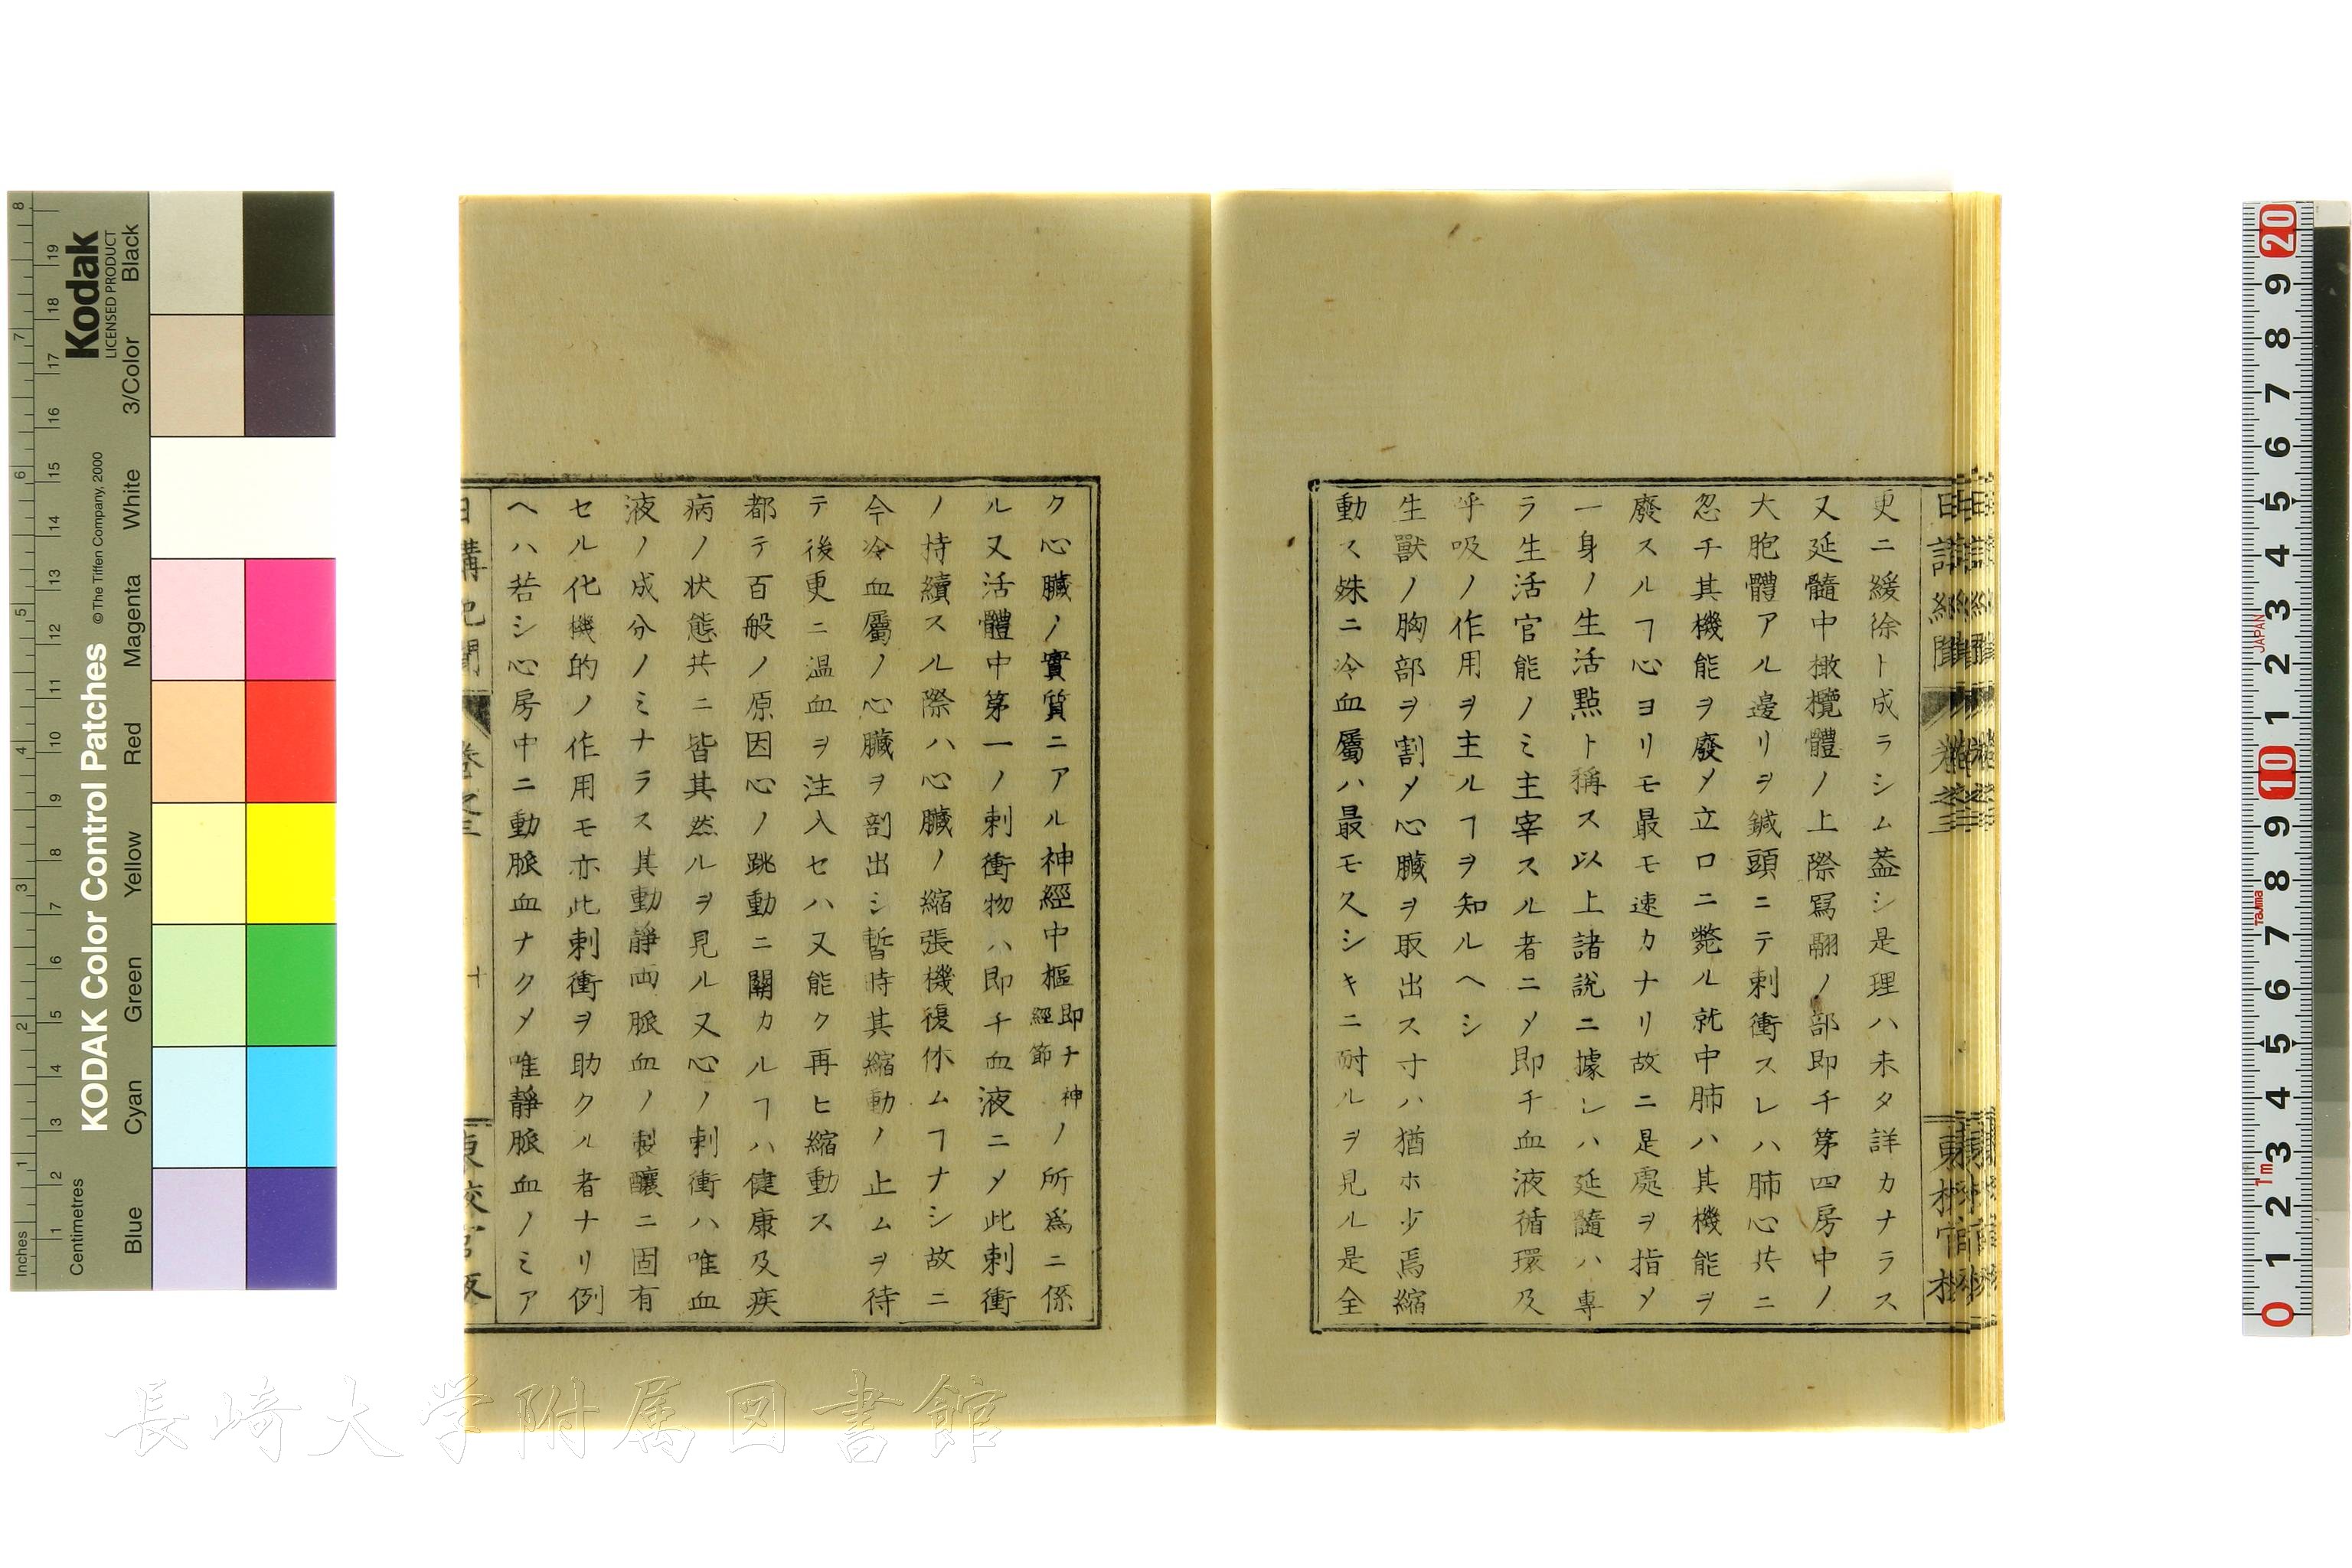 更ニ緩徐ト成ラシム葢シ是理ハ未タ詳カナラス
又延髓中橄欖體ノ上際寫翮ノ部即チ第四房中ノ
大胞體アル邊リヲ鍼頭ニテ刺衝スレハ肺心共ニ
忽チ其機能ヲ廢〆立ロニ斃ル就中肺ハ其機能ヲ
廢スルヿ心ヨリモ最モ速カナリ故ニ是處ヲ指〆
一身ノ生活點ト稱ス以上諸説ニ據レハ延髓ハ專
ラ生活官能ノミ主宰スル者ニ〆即チ血液循環及
呼吸ノ作用ヲ主ルヿヲ知ルヘシ
生獸ノ胸部ヲ割〆心臟ヲ取出ス寸ハ猶ホ少焉縮
動ス殊ニ冷血屬ハ最モ久シキニ耐ルヲ見ル是全
ク心臟ノ實質ニアル神經中樞即チ神經節ノ所爲ニ係
ル又活體中第一ノ刺衝物ハ即チ血液ニ〆此刺衝
ノ持續スル際ハ心臟ノ縮張機復休ムヿナシ故ニ
今冷血屬ノ心臟ヲ剖出シ暫時其縮動ノ止ムヲ待
テ後更ニ温血ヲ注入セハ又能ク再ヒ縮動ス
都テ百般ノ原因心ノ跳動ニ關カルヿハ健康及疾
病ノ状態共ニ皆其然ルヲ見ル又心ノ刺衝ハ唯血
液ノ成分ノミナラス其動靜両脈血ノ製釀ニ固有
セル化機的ノ作用モ亦此刺衝ヲ助クル者ナリ例
ヘハ若シ心房中ニ動脈血ナク〆唯靜脈血ノミア
日講記聞 卷之三 十 東校官板
KODAK Color Control Patches
© The Tiffen Company, 2000
Kodak
LICENSED PRODUCT
Inches 1 2 3 4 5 6 7 8
Centimetres 1 2 3 4 5 6 7 8 9 10 11 12 13 14 15 16 17 18 19
Blue Cyan Green Yellow Red Magenta White 3/Color Black
0 1 2 3 4 5 6 7 8 9 10 1 2 3 4 5 6 7 8 9 20
1m Tajima JAPAN
長崎大学附属図書館